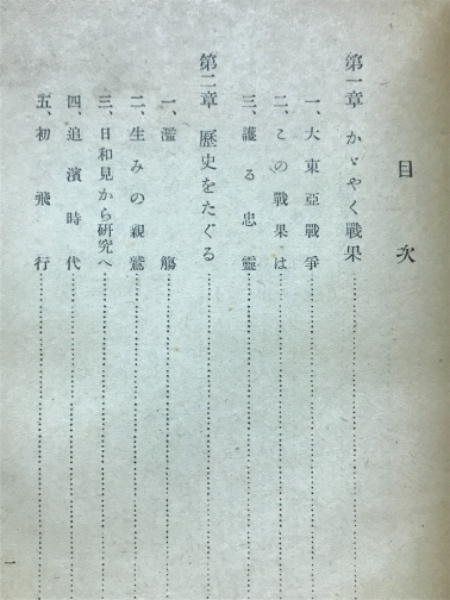 目次
第一章 かゞやく戰果
一、大東亞戰爭
二、この戰果は
三、護る忠靈
第二章 歷史をたぐる
一、濫觴
二、生みの親鷲
三、日和見から硏究へ
四、追濱時代
五、初飛行
一